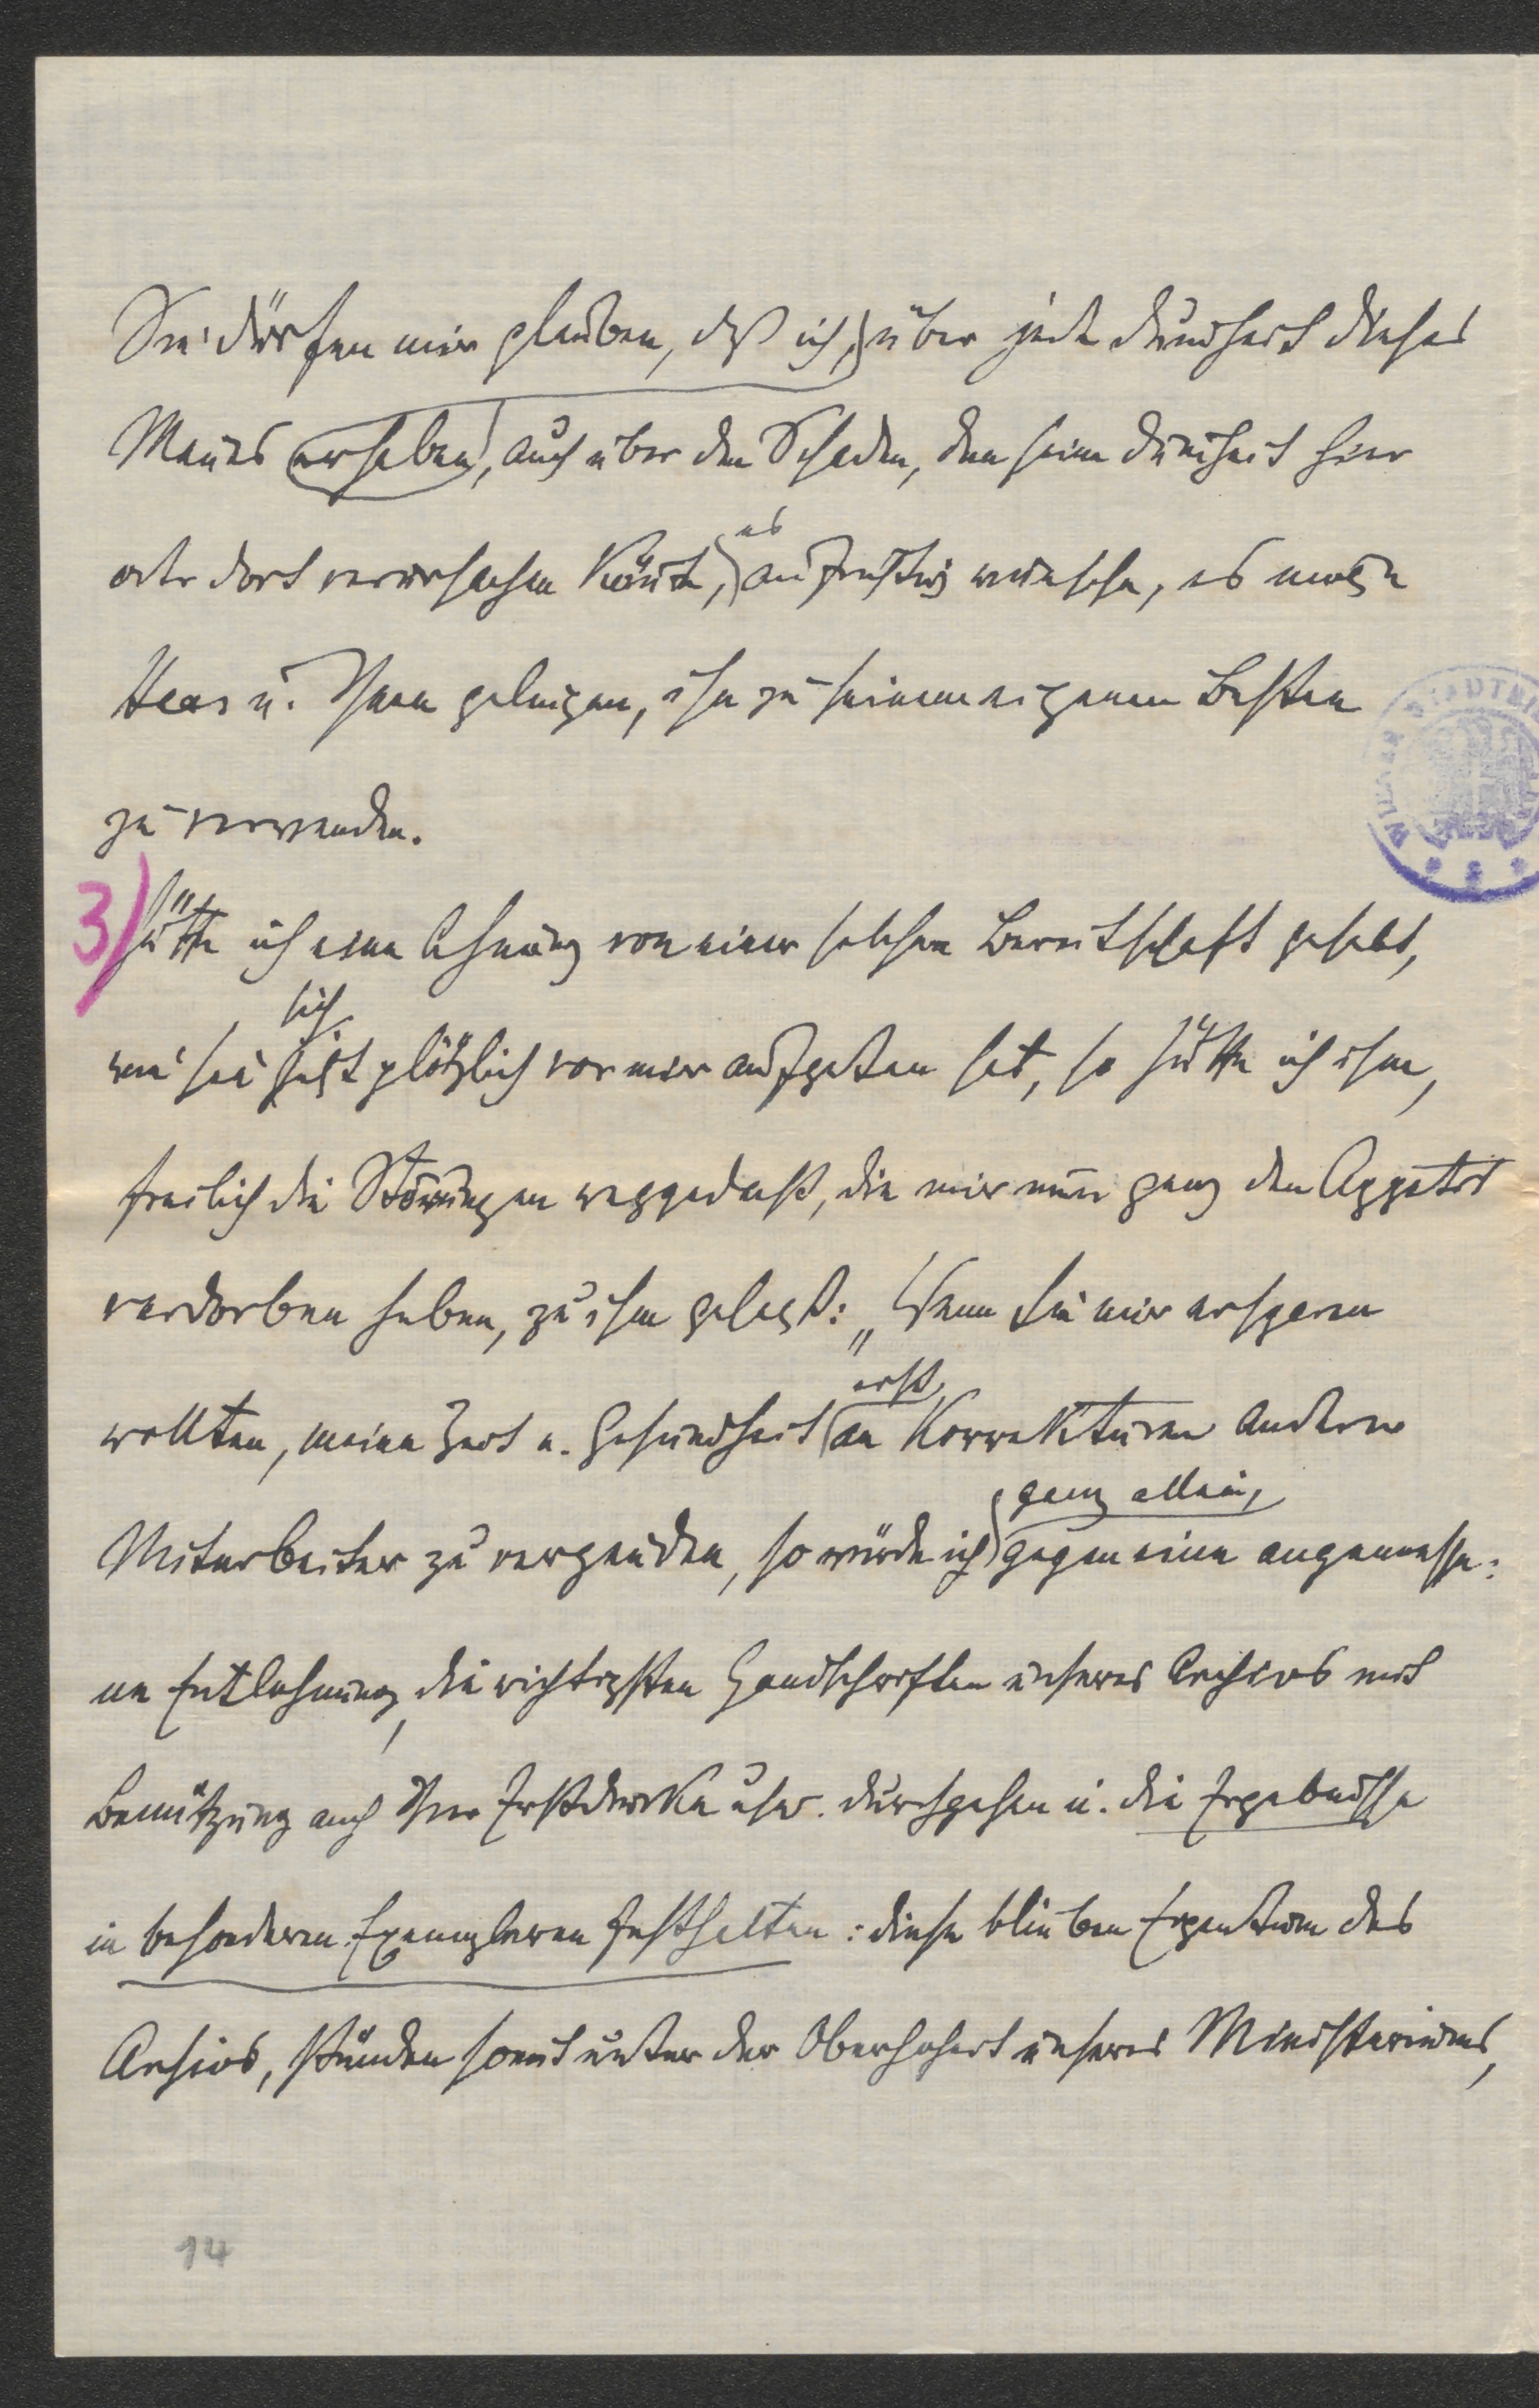 Sie dürfen mir glauben, daß ich, über jede Dummheit dieses
Mannes erhaben, auch über den Schaden, den seine Dummheit hier
oder dort verursachen könnte, es aufrichtig wünsche, es möge
Haas u. Ihnen gelingen, ihn zu seinem eigenen Besten
zu verwenden.
3) Hätte ich eine Ahnung von einer solchen Bereitschaft gehabt,
wie sie sich jetzt plötzlich vor mir aufgetan hat, so hätte ich ihm,
freilich die Störungen weggedacht, die mir nun ganz den Appetit
verdorben haben, zu ihm gesagt: „Wenn Sie mir ersparen
wollten, meine Zeit u. Gesundheit erst an Korrekturen anderer
Mitarbeiter zu vergeuden, so würde ich ganz allein, gegen eine angemesse-
ne Entlohnung, die wichtigsten Handschriften unseres Archivs mit
Benützung auch Ihrer Erstdrucke usw. durchgehen u. die Ergebnisse
in besonderen Exemplaren festhalten: diese blieben Eigentum des
Archivs, stünden somit unter der Oberhoheit unseres Ministeriums,
14